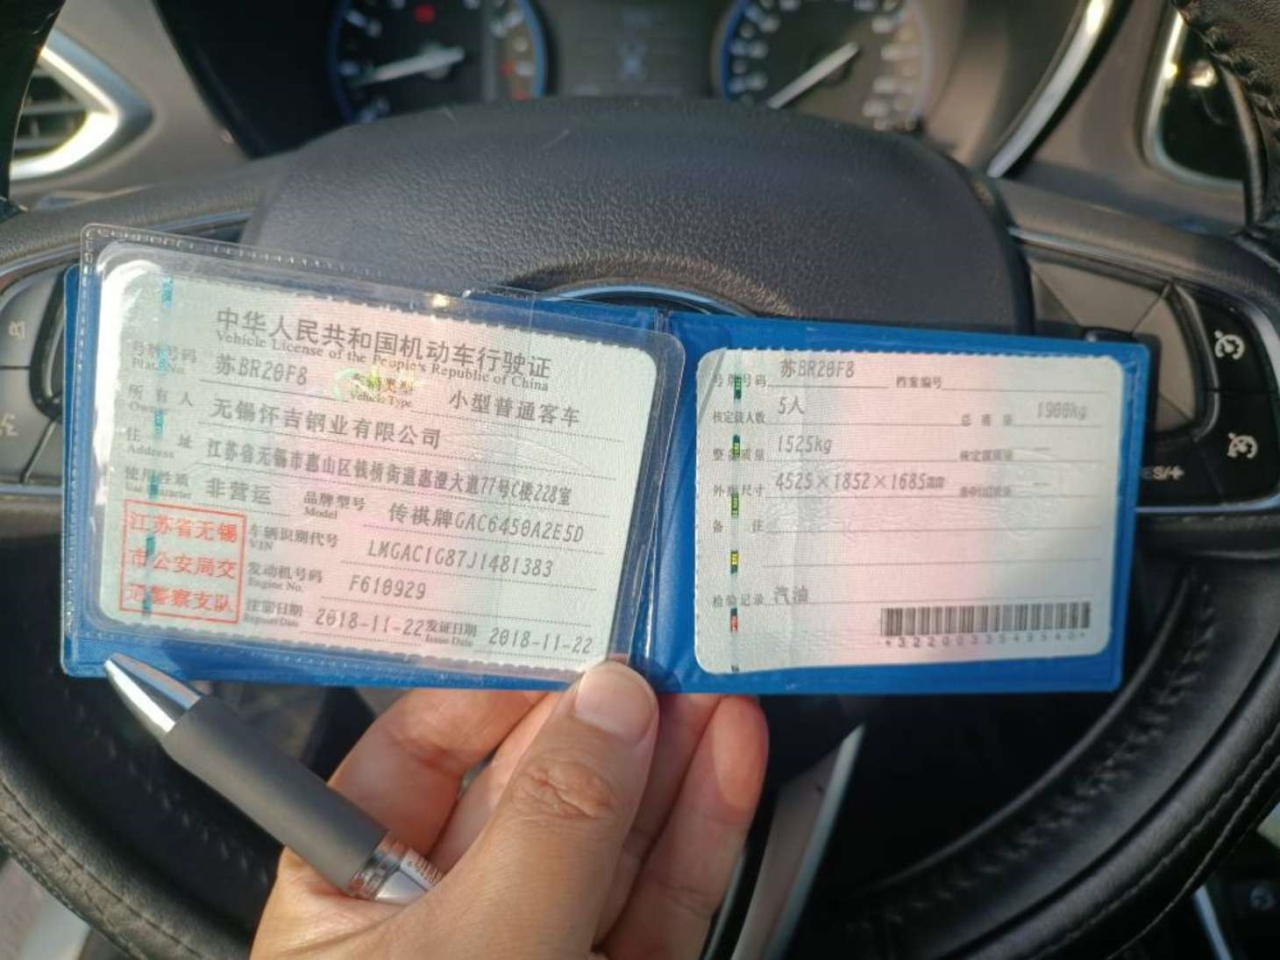 中华人民共和国机动车行驶证
Vehicle License of the People's Republic of China
号牌号码 苏BR20F8 车辆类型 小型普通客车
Plate No. Vehicle Type
所有人 无锡怀吉钢业有限公司
Owner
住址 江苏省无锡市惠山区钱桥街道惠澄大道77号C楼228室
Address
使用性质 非营运 品牌型号 传祺牌GAC6450A2E5D
Use Character Model
江苏省无锡
市公安局交
通警察支队
车辆识别代号 LMGAC1G87J1481383
VIN
发动机号码 F610929
Engine No.
注册日期 2018-11-22 发证日期 2018-11-22
Register Date Issue Date
号牌号码 苏BR20F8 档案编号
核定载人数 5人 总质量 1900kg
整备质量 1525kg 核定载质量 --
外廓尺寸 4525×1852×1685mm --
备注
检验记录 汽油
RES/+